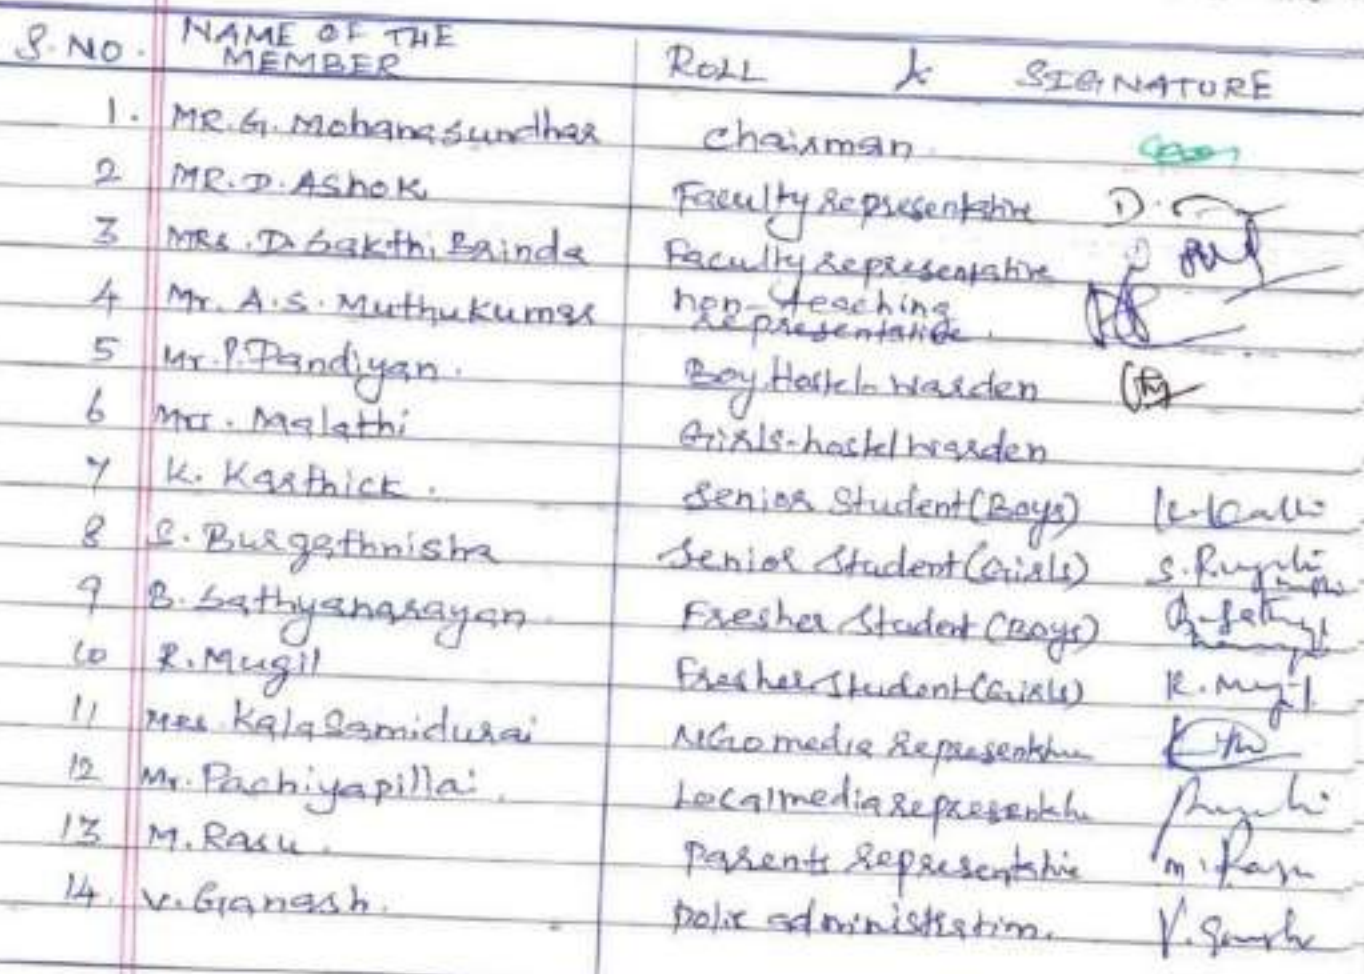 S.NO. NAME OF THE MEMBER ROLL & SIGNATURE
1. MR.G. Mohanasundhar Chairman
2 MR.D. ASHOK Faculty representative D.
3 MRs. D. Sakthi Brinda Faculty representative
4 Mr. A.S. Muthukumar non-teaching representative.
5 Mr.P.Pandiyan. Boy Hostel warden
6 Mrs. Malathi Girls-hostel warden
7 K. Karthick. Senior Student (Boys)
8 S. Burgathnisha Senior Student (Girls) S.
9 B. Sathyanarayan. Fresher Student (Boys)
10 R.Mugil Fresher Student (Girls) R. Mugil
11 Mrs Kala Samidurai NGO media Representative
12 Mr. Pachiyapillai. Local media representative
13 M. Rasu. Parents representative M. Rasu
14. V. Ganesh. Police administration. V. Ganesh